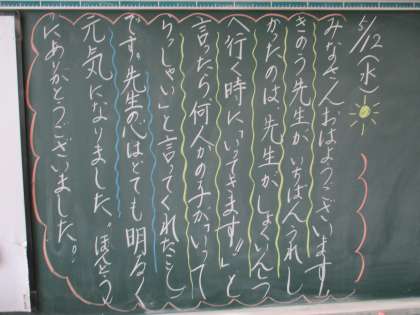 5/12(水)
みなさんおはようございます。
きのう先生がいちばんうれし
かったのは、先生がしょくいんしつ
へ行く時に、「いってきます!!」と
言ったら何人かの子が「いって
らっしゃい」と言ってくれたこと
です。先生の心はとても明るく
元気になりました。ほんとう
にありがとうございました。